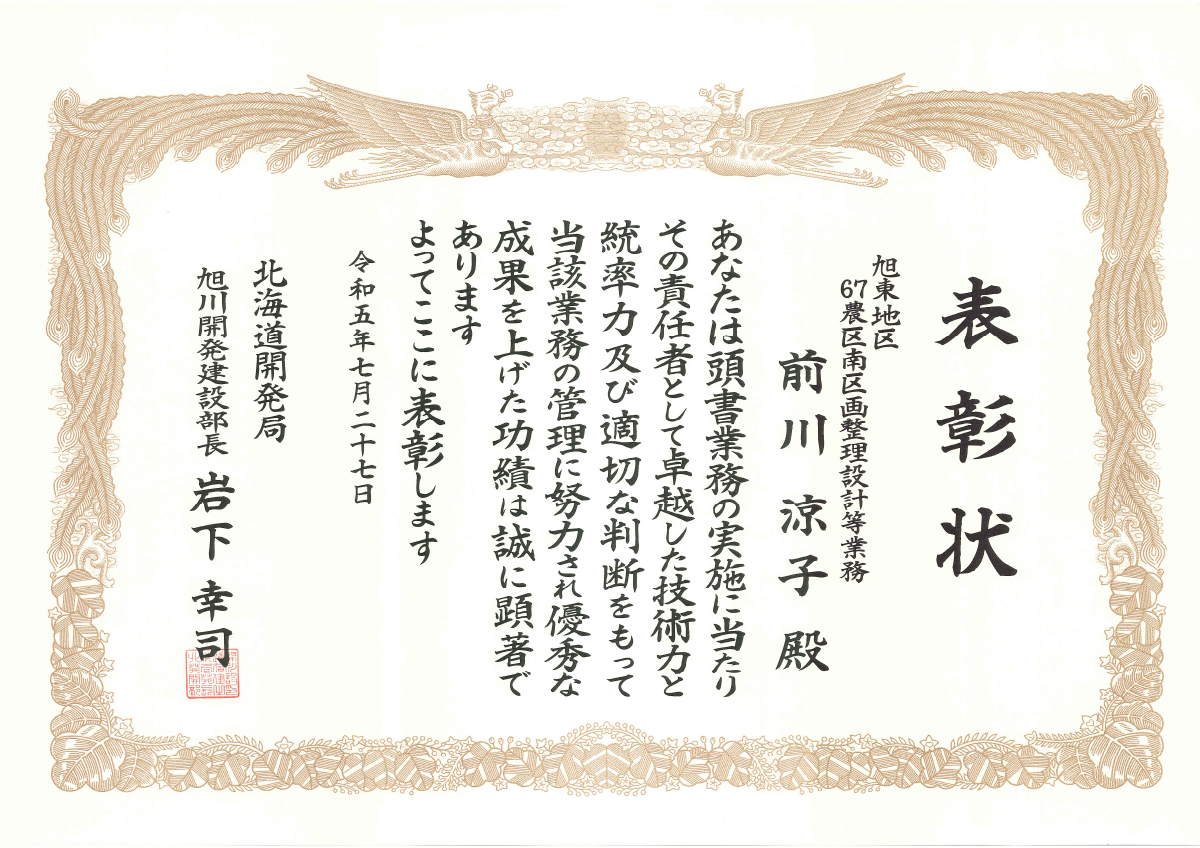 表彰状
旭東地区
67農区南区画整理設計等業務
前川涼子殿
あなたは頭書業務の実施に当たり
その責任者として卓越した技術力と
統率力及び適切な判断をもって
当該業務の管理に努力され優秀な
成果を上げた功績は誠に顕著で
あります
よってここに表彰します
令和五年七月二十七日
北海道開発局
旭川開発建設部長 岩下幸司